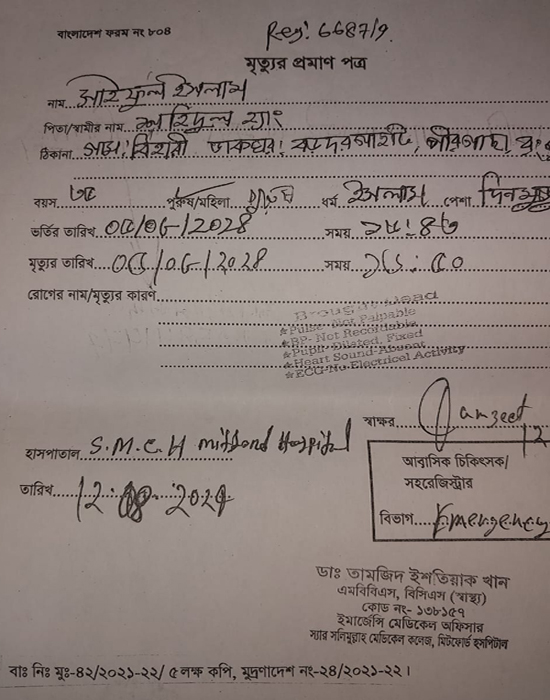 বাংলাদেশ ফরম নং ৮০৪
Reg: 6687/9
মৃত্যুর প্রমাণ পত্র
নাম আরিফুল ইসলাম
পিতা/স্বামীর নাম
ঠিকানা
বয়স ৩৫ পুরুষ/মহিলা পুরুষ ধর্ম ইসলাম পেশা
ভর্তির তারিখ ০৫/০৮/২০২৪ সময়
মৃত্যুর তারিখ ০৫/০৮/২০২৪ সময়
রোগের নাম/মৃত্যুর কারণ
Brought dead
*Pulse- Not Palpable
*BP- Not Recordable
*Pupil- Dilated, Fixed
*Heart Sound-Absent
*ECG-No Electrical Activity
স্বাক্ষর
হাসপাতাল S.M.C.H Mitford Hospital
আবাসিক চিকিৎসক/
সহরেজিস্ট্রার
তারিখ
বিভাগ Emergency
ডাঃ তামজিদ ইশতিয়াক খান
এমবিবিএস, বিসিএস (স্বাস্থ্য)
কোড নং- ১৩৮১৫৭
ইমার্জেন্সি মেডিকেল অফিসার
স্যার সলিমুল্লাহ মেডিকেল কলেজ, মিটফোর্ড হসপিটাল
বাঃ নিঃ মুঃ-৪২/২০২১-২২/ ৫ লক্ষ কপি, মুদ্রণাদেশ নং-২৪/২০২১-২২।